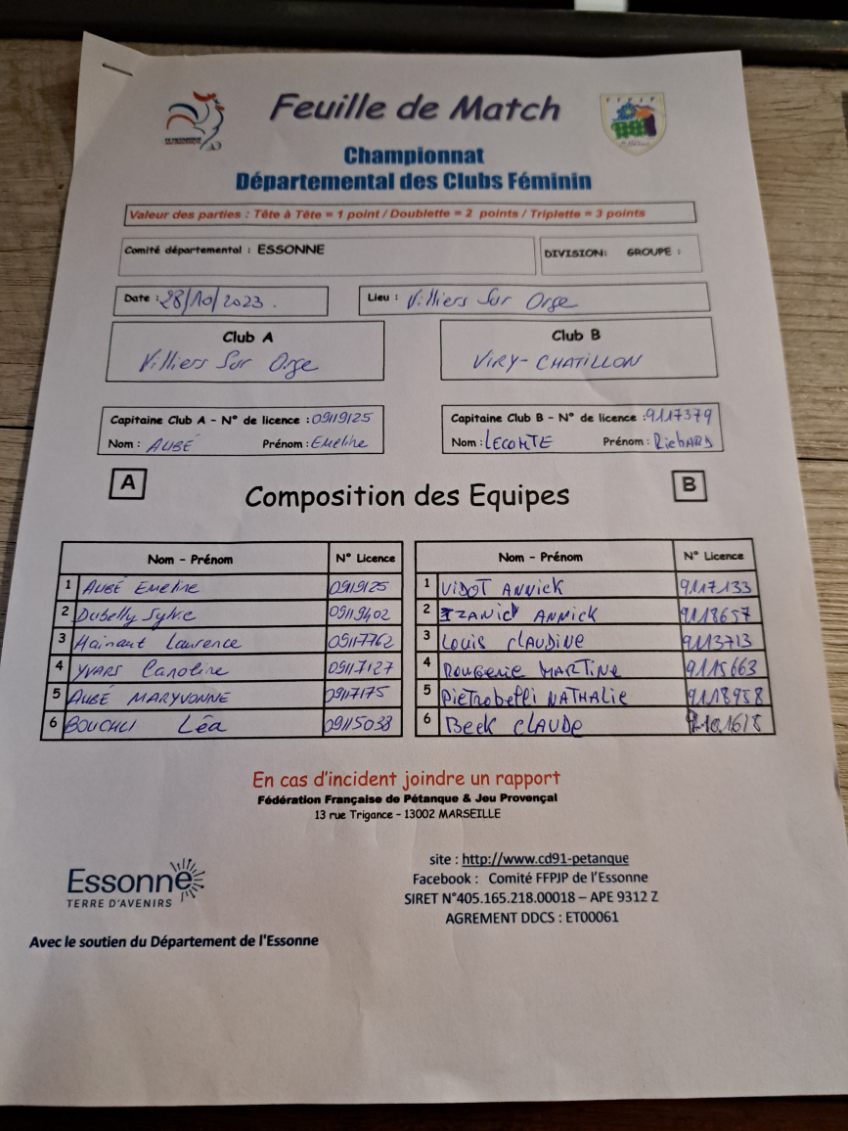 Feuille de Match
Championnat
Départemental des Clubs Féminin
Valeur des parties : Tête à Tête = 1 point / Doublette = 2 points / Triplette = 3 points
Comité départemental : ESSONNE
DIVISION: GROUPE :
Date : 28/10/2023.
Lieu : Villiers Sur Orge
Club A
Villiers Sur Orge
Club B
VIRY-CHATILLON
Capitaine Club A - N° de licence : 09119125
Nom : AUBÉ Prénom : Emeline
Capitaine Club B - N° de licence : 9117379
Nom : LECOMTE Prénom : RichARD
A
Composition des Equipes
B
Nom - Prénom N° Licence
1 AUBÉ Emeline 09119125
2 Dubelly Sylvie 09119402
3 Hainaut Laurence 09117762
4 YVARS Caroline 09117127
5 AUBÉ MARYVONNE 09117175
6 BOUCHLI Léa 09115038
Nom - Prénom N° Licence
1 ViDOT ANNicK 9117133
2 ANNICK 9118657
3 Louis CLAUDINE 9113713
4 ROUGERIE MARTINE 9115663
5 PiETRobELLi NATHALie 9118958
6 BeeK CLAUDe
En cas d'incident joindre un rapport
Fédération Française de Pétanque & Jeu Provençal
13 rue Trigance - 13002 MARSEILLE
Essonne
TERRE D'AVENIRS
Avec le soutien du Département de l'Essonne
site : http://www.cd91-petanque
Facebook : Comité FFPJP de l'Essonne
SIRET N°405.165.218.00018 – APE 9312 Z
AGREMENT DDCS : ET00061